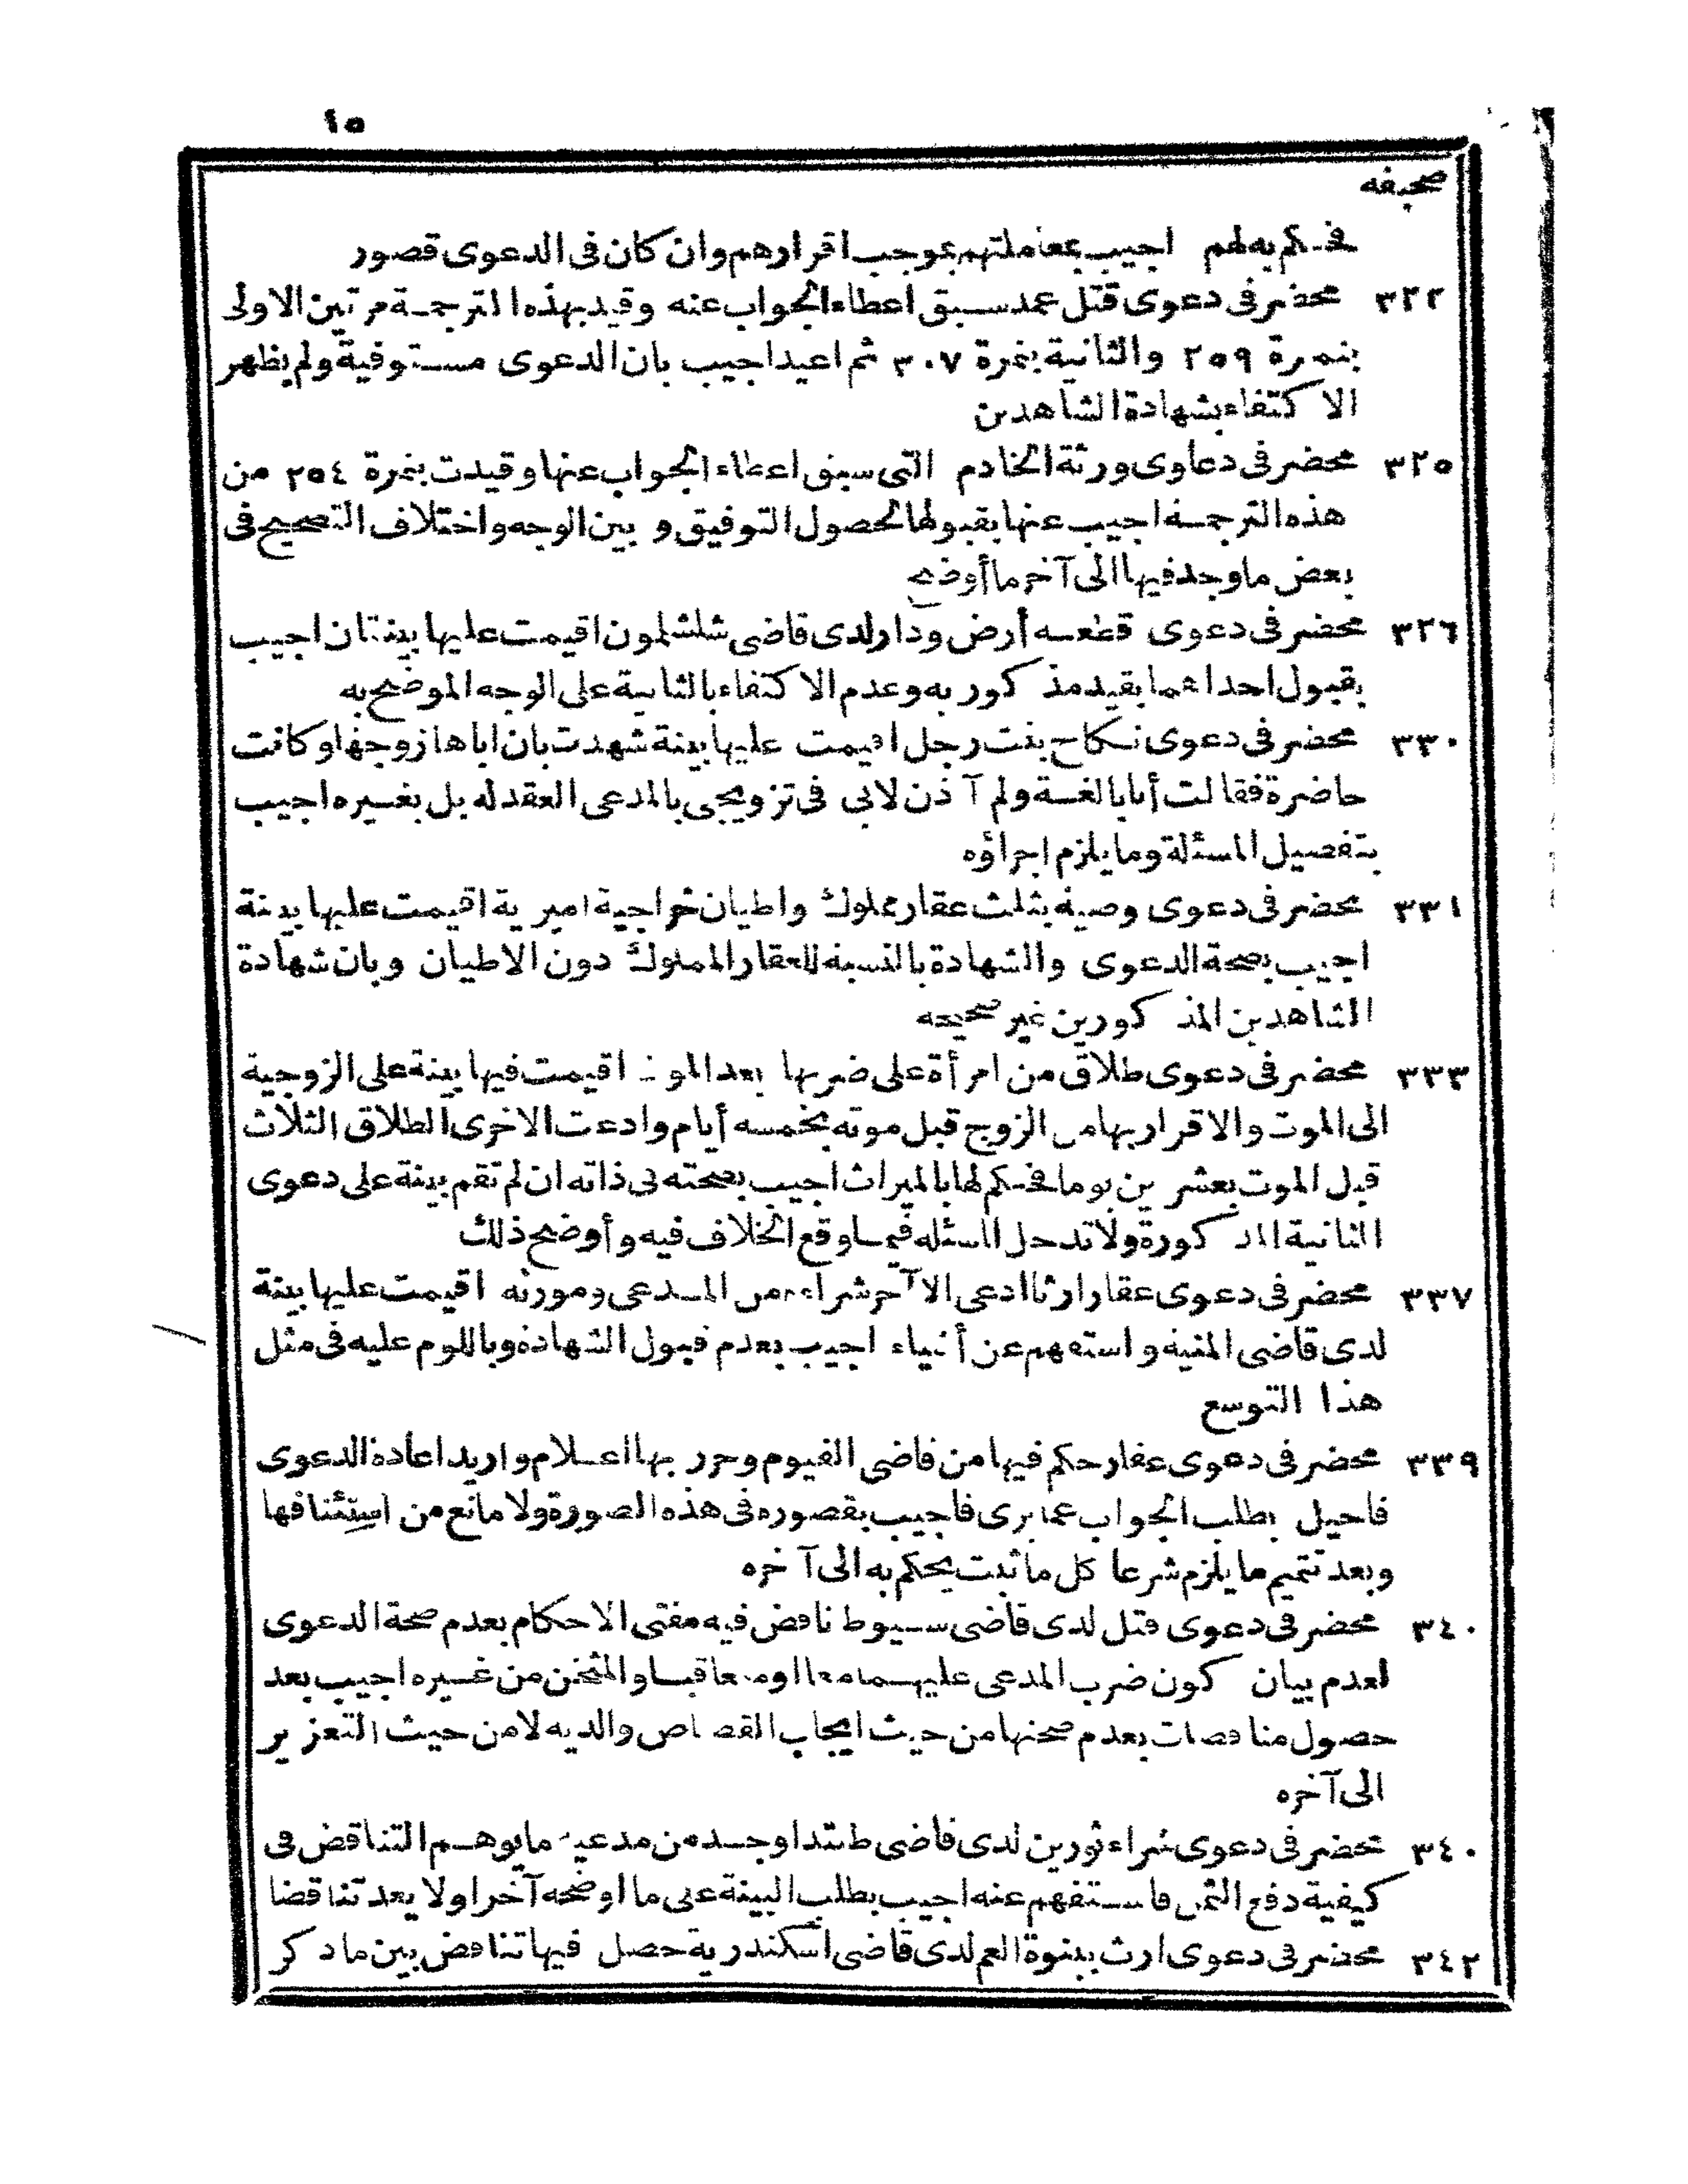 ١٥
صحيفه
فحكم به لهم اجيب بمعاملتهم بموجب اقرارهم وان كان فى الدعوى قصور
٣٢٢ محضر فى دعوى قتل عمد سبق اعطاء الجواب عنه وقيد بهذه الترجمة مرتين الاولى
بنمرة ٢٥٩ والثانية بنمرة ٣٠٧ ثم اعيد اجيب بان الدعوى مستوفية ولم يظهر
الاكتفاء بشهادة الشاهدين
٣٢٥ محضر فى دعاوى ورثة الخادم التى سبق اعطاء الجواب عنها وقيدت بنمرة ٢٥٤ من
هذه الترجمة اجيب عنها بقبولها لحصول التوفيق و بين الوجه واختلاف التصحيح فى
بعض ما وجد فيها الى آخر ما أوضح
٣٢٦ محضر فى دعوى قطعه أرض ودار لدى قاضى شلشلمون اقيمت عليها بينتان اجيب
بقبول احداهما بقيد مذكور به وعدم الاكتفاء بالثانية على الوجه الموضح به
٣٣٠ محضر فى دعوى نكاح بنت رجل اقيمت عليها بينة شهدت بان اباها زوجها وكانت
حاضرة فقالت أنا بالغة ولم آذن لابى فى تزويجى بالمدعى العقد له بل بغيره اجيب
بتفصيل المسئلة وما يلزم اجراؤه
٣٣١ محضر فى دعوى وصيه بثلث عقار مملوك واطيان خراجية اميرية اقيمت عليها بينة
اجيب بصحة الدعوى والشهادة بالنسبه للعقار المملوك دون الاطيان وبان شهادة
الشاهدين المذكورين غير صحيحه
٣٣٣ محضر فى دعوى طلاق من امرأة على ضرتها بعد الموت اقيمت فيها بينة على الزوجية
الى الموت والاقرار بها من الزوج قبل موته بخمسه أيام وادعت الاخرى الطلاق الثلاث
قبل الموت بعشرين يوما فحكم لها بالميراث اجيب بصحته فى ذاته ان لم تقم بينة على دعوى
الثانية المذكورة ولا تدخل المسئله فيما وقع الخلاف فيه وأوضح ذلك
٣٣٧ محضر فى دعوى عقار ارثا ادعى الآخر شراءه من المدعى ومورثه اقيمت عليها بينة
لدى قاضى المنيه واستفهم عن أشياء اجيب بعدم قبول الشهادة وباللوم عليه فى مثل
هذا التوسع
٣٣٩ محضر فى دعوى عقار حكم فيها من قاضى الفيوم وحرر بها اعلام واريد اعادة الدعوى
فاحيل بطلب الجواب عما يرى فاجيب بقصوره فى هذه الصورة ولا مانع من استئنافها
وبعد تتميم ما يلزم شرعا كل ما ثبت يحكم به الى آخره
٣٤٠ محضر فى دعوى قتل لدى قاضى سيوط ناقض فيه مفتى الاحكام بعدم صحة الدعوى
لعدم بيان كون ضرب المدعى عليهما معا او متعاقبا والمثخن من غيره اجيب بعد
حصول مناقضات بعدم صحتها من حيث ايجاب القصاص والديه لا من حيث التعزير
الى آخره
٣٤٠ محضر فى دعوى شراء ثورين لدى قاضى طنتدا وجد من مدعيه ما يوهم التناقض فى
كيفية دفع الثمن فاستفهم عنه اجيب بطلب البينة على ما اوضحه آخرا ولا يعد تناقضا
٣٤٢ محضر فى دعوى ارث ببنوة العم لدى قاضى اسكندرية حصل فيها تناقض بين ما ذكر